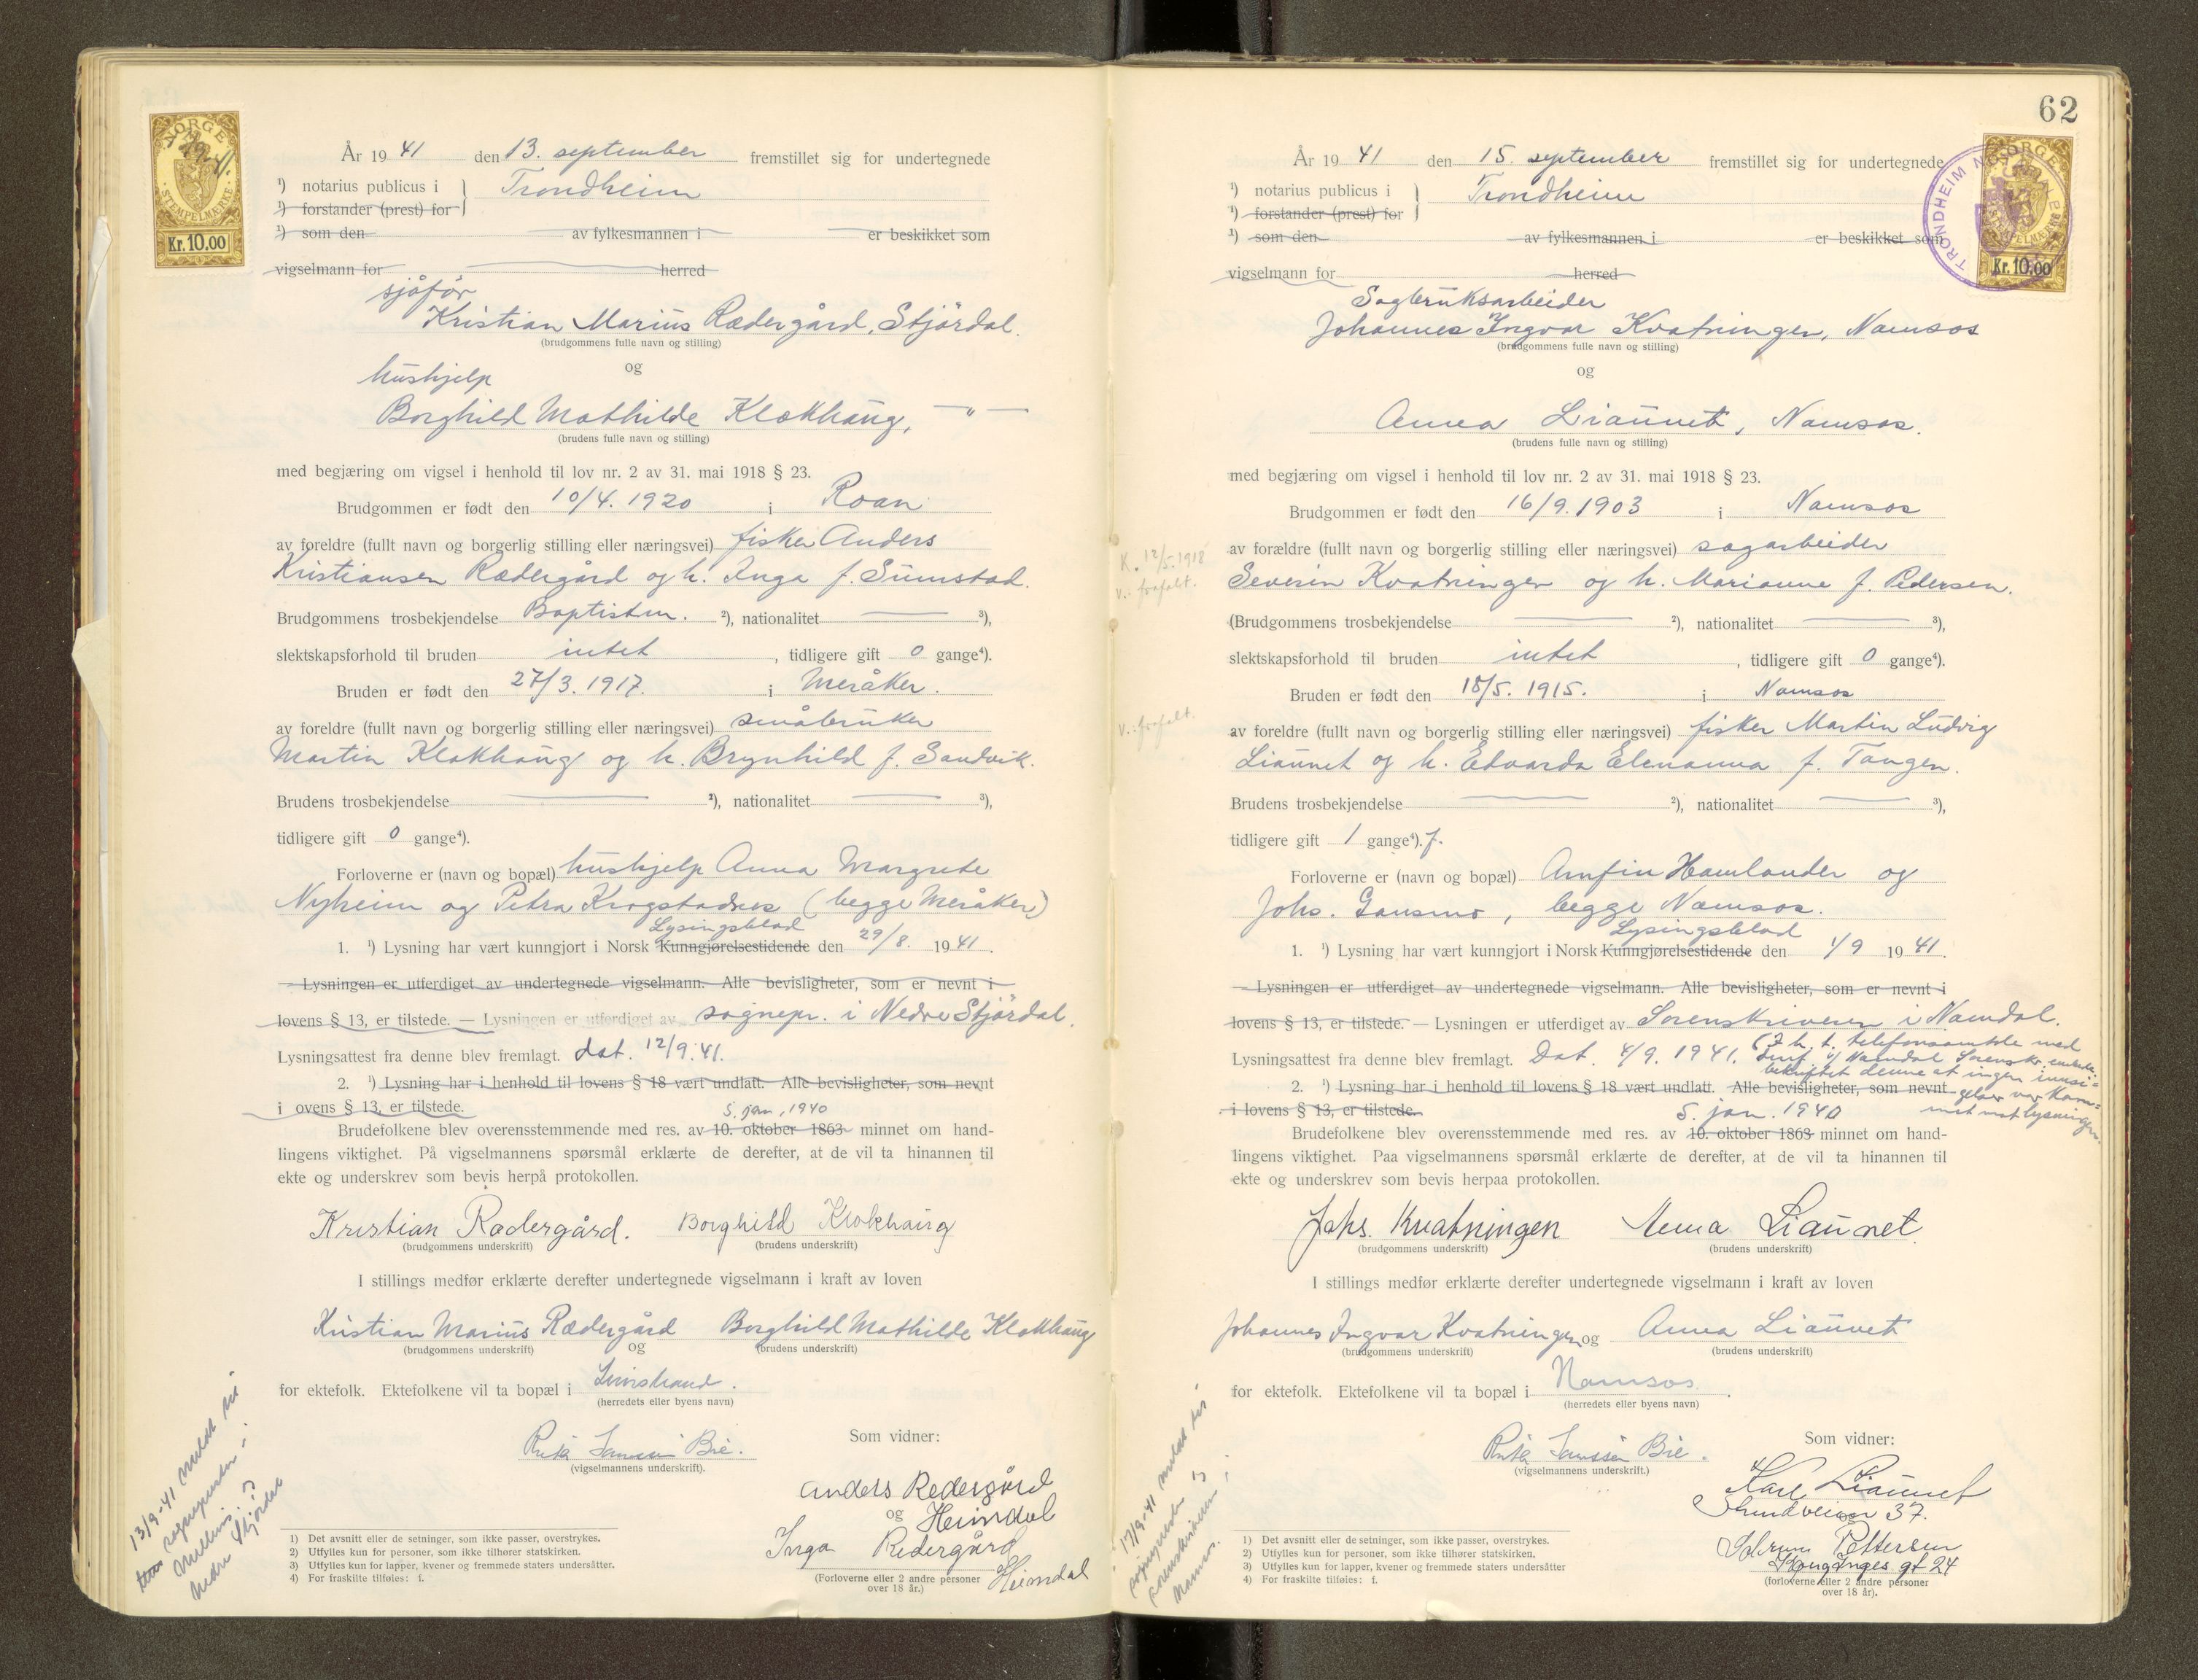 NORGE
STEMPELMÆRKE
Kr. 10.00
År 19 41 den 13. september fremstillet sig for undertegnede
¹) notarius publicus i } Trondheim
¹) forstander (prest) for
¹) som den av fylkesmannen i er beskikket som
vigselmann for herred
sjåför
Kristian Marius Rædergård, Stjördal.
(brudgommens fulle navn og stilling)
og
hushjelp
Borghild Mathilde Klokhaug, — " —
(brudens fulle navn og stilling)
med begjæring om vigsel i henhold til lov nr. 2 av 31. mai 1918 § 23.
Brudgommen er født den 10/4. 1920 i Roan
av foreldre (fullt navn og borgerlig stilling eller næringsvei) fisker Anders
Kristiansen Rædergård og h. Inga f. Sumstad.
Brudgommens trosbekjendelse Baptistm. ²), nationalitet — ³),
slektskapsforhold til bruden intet, tidligere gift 0 gange⁴).
Bruden er født den 27/3. 1917. i Meråker.
av foreldre (fullt navn og borgerlig stilling eller næringsvei) småbruker
Martin Klokkhaug og h. Brynhild f. Sandvik.
Brudens trosbekjendelse — ²), nationalitet — ³),
tidligere gift 0 gange⁴).
Forloverne er (navn og bopæl) hushjelp Anna Margrete
Nyheim og Petra Krogstadnes (begge Meråker)
Lysingsblad
1. ¹) Lysning har vært kunngjort i Norsk Kunngjørelsestidende den 29/8. 19 41.
— Lysningen er utferdiget av undertegnede vigselmann. Alle bevisligheter, som er nevnt i
lovens § 13, er tilstede. — Lysningen er utferdiget av sognepr. i Nedre Stjördal.
Lysningsattest fra denne blev fremlagt. dat. 12/9. 41.
2. ¹) Lysning har i henhold til lovens § 18 vært undlatt. Alle bevisligheter, som nevnt
i ovens § 13, er tilstede.
5. jan. 1940
Brudefolkene blev overensstemmende med res. av 10. oktober 1863 minnet om hand-
lingens viktighet. På vigselmannens spørsmål erklærte de derefter, at de vil ta hinannen til
ekte og underskrev som bevis herpå protokollen.
Kristian Rædergård. Borghild Klokhaug
(brudgommens underskrift) (brudens underskrift)
I stillings medfør erklærte derefter undertegnede vigselmann i kraft av loven
Kristian Marius Rædergård Borghild Mathilde Klokkhaug
(brudgommens underskrift) og (brudens underskrift)
for ektefolk. Ektefolkene vil ta bopæl i
(herredets eller byens navn)
Som vidner:
(vigselmannens underskrift).
Anders Redergård
og Heimdal
Inga Redergård
Heimdal
(Forloverne eller 2 andre personer
over 18 år.)
13/9-41 meldt til
sogneprester i
Nedre Stjördal
1) Det avsnitt eller de setninger, som ikke passer, overstrykes.
2) Utfylles kun for personer, som ikke tilhører statskirken.
3) Utfylles kun for lapper, kvener og fremmede staters undersåtter.
4) For fraskilte tilføies: f.
62
NORGE
STEMPELMÆRKE
Kr. 10.00
TRONDHEIM
År 19 41 den 15. september fremstillet sig for undertegnede
¹) notarius publicus i } Trondheim
¹) forstander (prest) for
¹) som den av fylkesmannen i er beskikket som
vigselmann for herred
Sagbruksarbeider
Johannes Ingvar Kvatningen, Namsos
(brudgommens fulle navn og stilling)
og
Anna Liaunet, Namsos.
(brudens fulle navn og stilling)
med begjæring om vigsel i henhold til lov nr. 2 av 31. mai 1918 § 23.
Brudgommen er født den 16/9. 1903 i Namsos
K. 12/5. 1918
av forældre (fullt navn og borgerlig stilling eller næringsvei) sagarbeider
Severin Kvatningen og h. Marianne f. Pedersen.
(Brudgommens trosbekjendelse — ²), nationalitet — ³),
slektskapsforhold til bruden intet, tidligere gift 0 gange⁴).
Bruden er født den 18/5. 1915. i Namsos
av foreldre (fullt navn og borgerlig stilling eller næringsvei) fisker Martin Ludvig
Liaunet og h. Edvarda Elenanna f. Tangen.
Brudens trosbekjendelse — ²), nationalitet — ³),
tidligere gift 1 gange⁴). f.
Forloverne er (navn og bopæl) Arnfin Hamlander og
Johs. Gansmo, begge Namsos.
Lysingsblad
1. ¹) Lysning har vært kunngjort i Norsk Kunngjørelsestidende den 1/9 19 41.
— Lysningen er utferdiget av undertegnede vigselmann. Alle bevisligheter, som er nevnt i
lovens § 13, er tilstede. — Lysningen er utferdiget av Sorenskriveren i Namdal.
Lysningsattest fra denne blev fremlagt. Dat. 4/9. 1941. (I h. t. telefonsamtale med
Namdal Sorenskr. embete
bekreftet denne at ingen innsi-
2. ¹) Lysning har i henhold til lovens § 18 vært undlatt. Alle bevisligheter, som nevnt gelser var kom-
i lovens § 13, er tilstede. met mot lysningen.
5. jan. 1940
Brudefolkene blev overensstemmende med res. av 10. oktober 1863 minnet om hand-
lingens viktighet. Paa vigselmannens spørsmål erklærte de derefter, at de vil ta hinannen til
ekte og underskrev som bevis herpaa protokollen.
Johs. Kvatningen Anna Liaunet
(brudgommens underskrift) (brudens underskrift)
I stillings medfør erklærte derefter undertegnede vigselmann i kraft av loven
Johannes Ingvar Kvatningen og Anna Liaunet
(brudgommens underskrift) (brudens underskrift)
for ektefolk. Ektefolkene vil ta bopæl i Namsos.
(herredets eller byens navn)
Som vidner:
(vigselmannens underskrift.)
Karl Liaunet
37.
Pettersen
gt 24
(forloverne eller 2 andre personer
over 18 år).
17/9-41 meldt til
Namsos.
1) Det avsnitt eller de setninger, som ikke passer, overstrykes.
2) Utfylles kun for personer, som ikke tilhører statskirken.
3) Utfylles kun for lapper, kvener og fremmede staters undersåtter
4) For fraskilte tilføies: f.